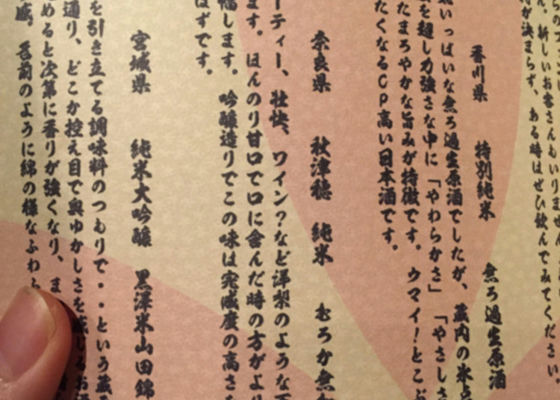 新しいお
が決まらず、ある時はぜひ飲んでみてください。
香川県 特別純米 無ろ過生原酒
いっぱいな無ろ過生原酒でしたが、蔵内の米
を超し力強さな中に「やわらかさ」「やさしさ
たまろやかな旨みが特徴です。ウマイ!とこ
たくなるCP高い日本酒です。
奈良県 秋津穂 純米 むろか無
ーティー、壮快、ワイン?など洋梨のような
ます。ほんのり甘口で口に含んだ時の方がより
幅します。吟醸造りでこの味は完成度の高さ
はずです。
宮城県 純米大吟醸 黒澤米山田錦
を引き立てる調味料のつもりで・・という蔵
通り、どこか控え目で奥ゆかしさを感じるお
めると次第に香りが強くなり、ま
感。舌前のように綿の様なふわ